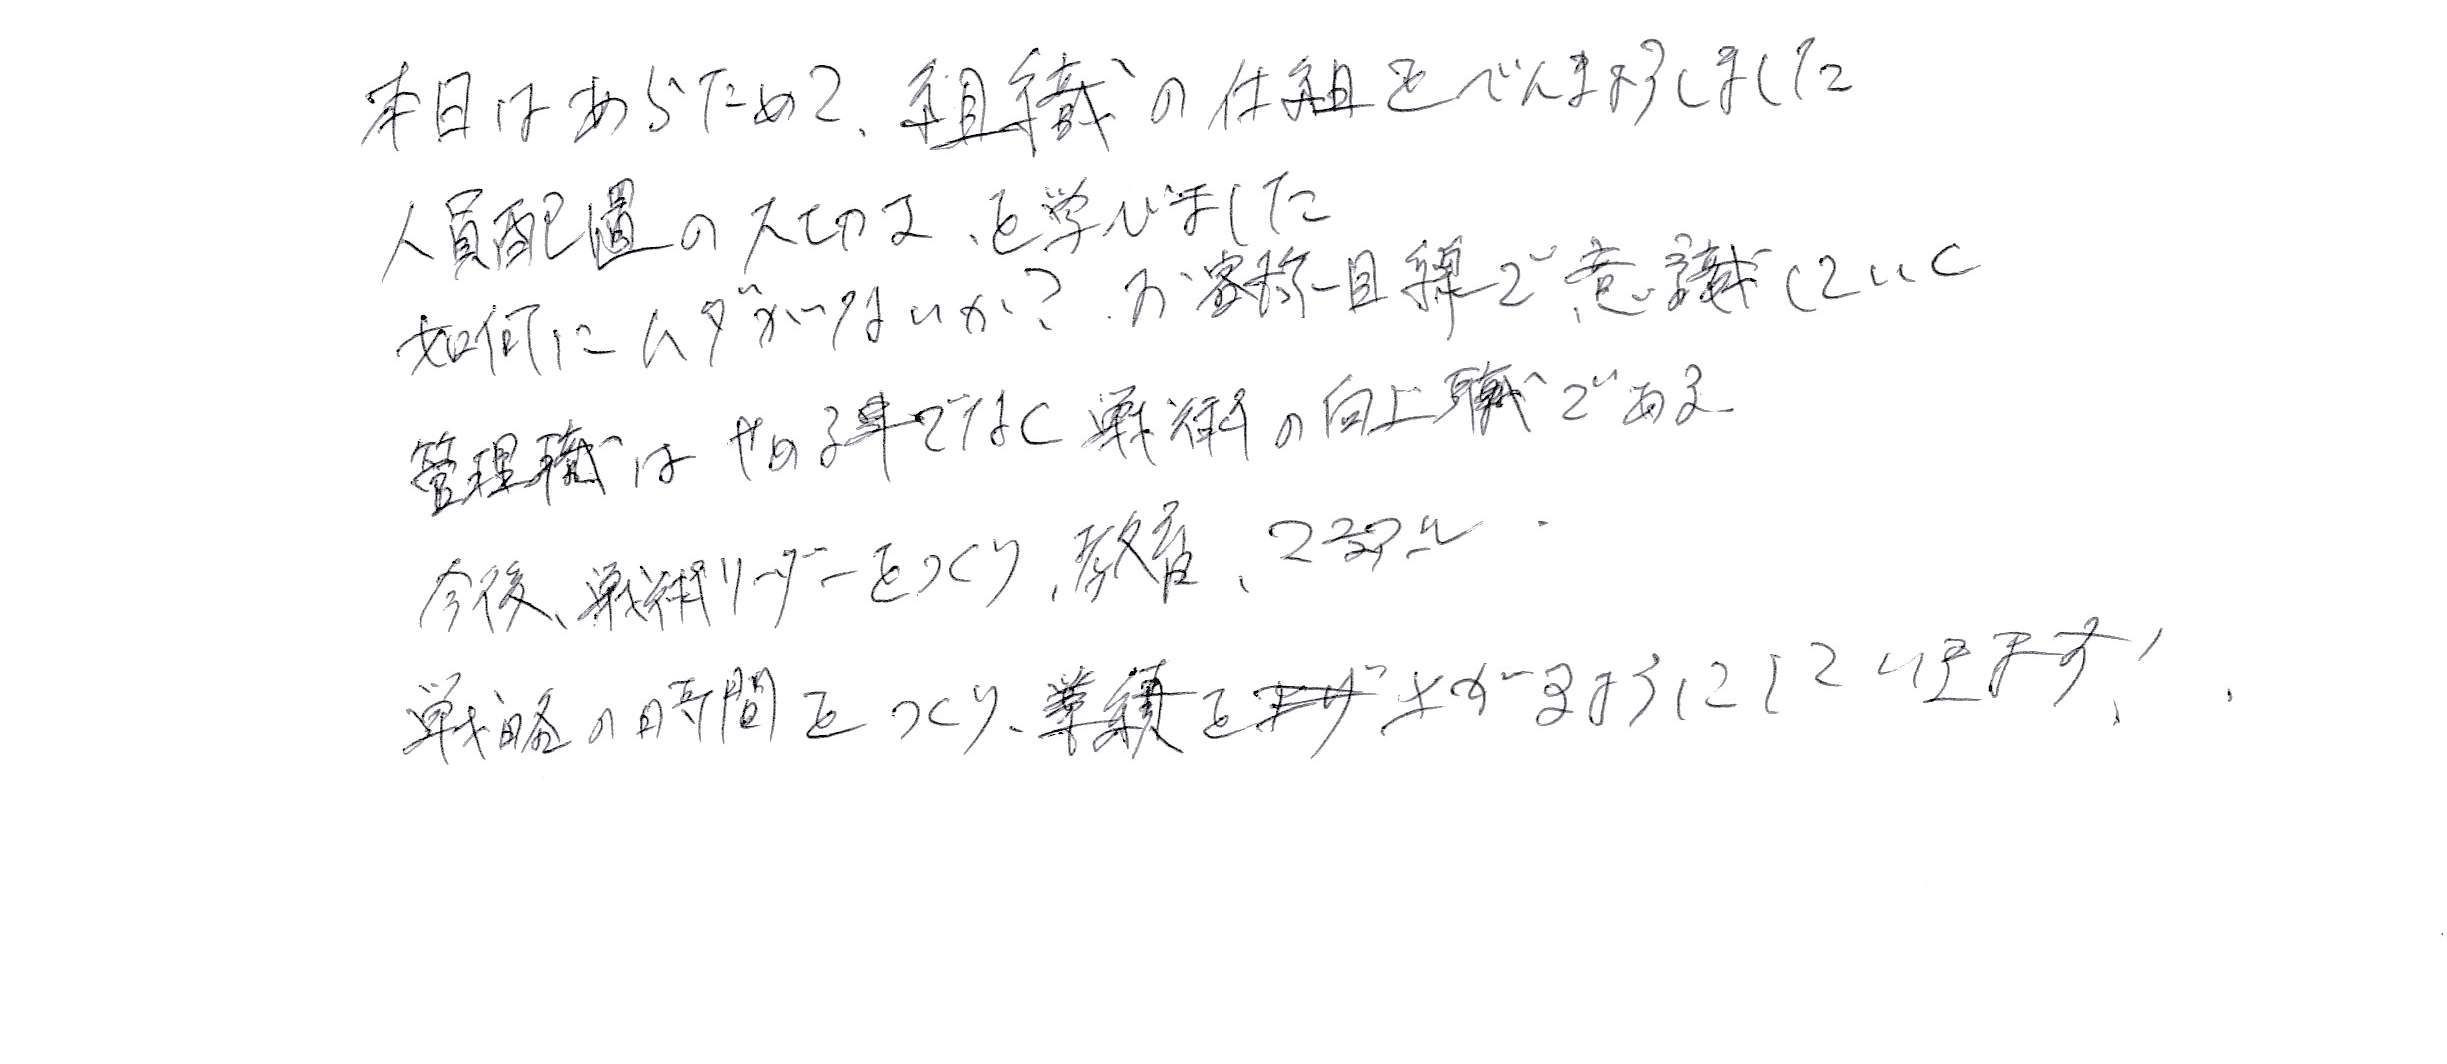 本日はあらためて、組織の仕組をべんきょうしました
人員配置の大切さ、を学びました
如何にムダがないか？お客様目線で、意識していく
管理職はやめる事でなく戦術の向上職である
今後、戦術リーダーをつくり、教育、
戦略の時間をつくり、業績を上がるようにしていきます！